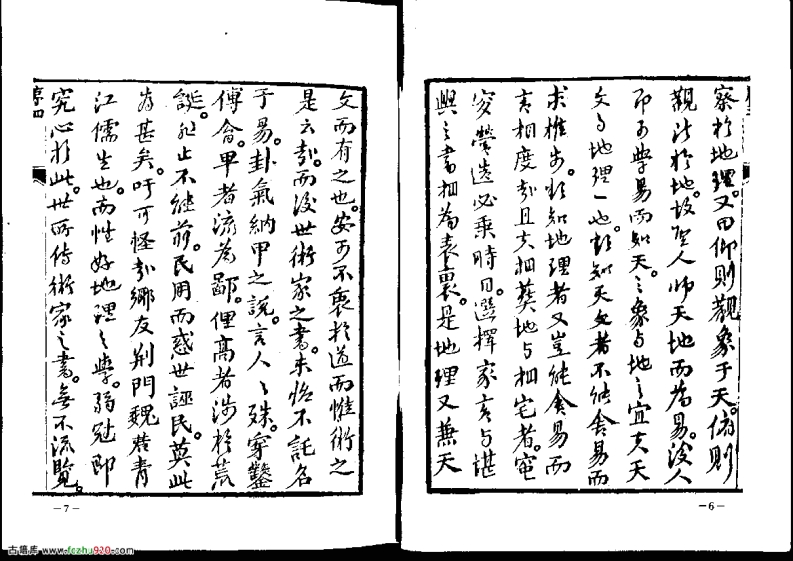 察於地理。又曰仰則觀象于天。俯則
觀法於地。故聖人師天地而為易。後人
即可學易而知天之象與地之宜夫天
文與地理一也。彼知天文者不能舍易而
求推步。彼知地理者又豈能舍易而
言相度哉且夫相葬地與相宅者。窀
穸營造必乘時日。選擇家言與堪
輿之書相為表裏。是地理又兼天
-6-
文而有之也。安可不衷於道而惟術之
是云哉。而後世術家之書。未嘗不託名
于易。卦氣納甲之說。言人人殊。穿鑿
傅會。卑者流為鄙俚。高者涉於荒
誕。非止不能前民用而惑世誣民莫此
為甚矣。吁可怪哉鄉友荆門魏君青
江儒生也。而性好地理之學。弱冠即
究心於此。世所傳術家之書。無不流覽。
序四
-7-
古籍库 www.fczhu920.com